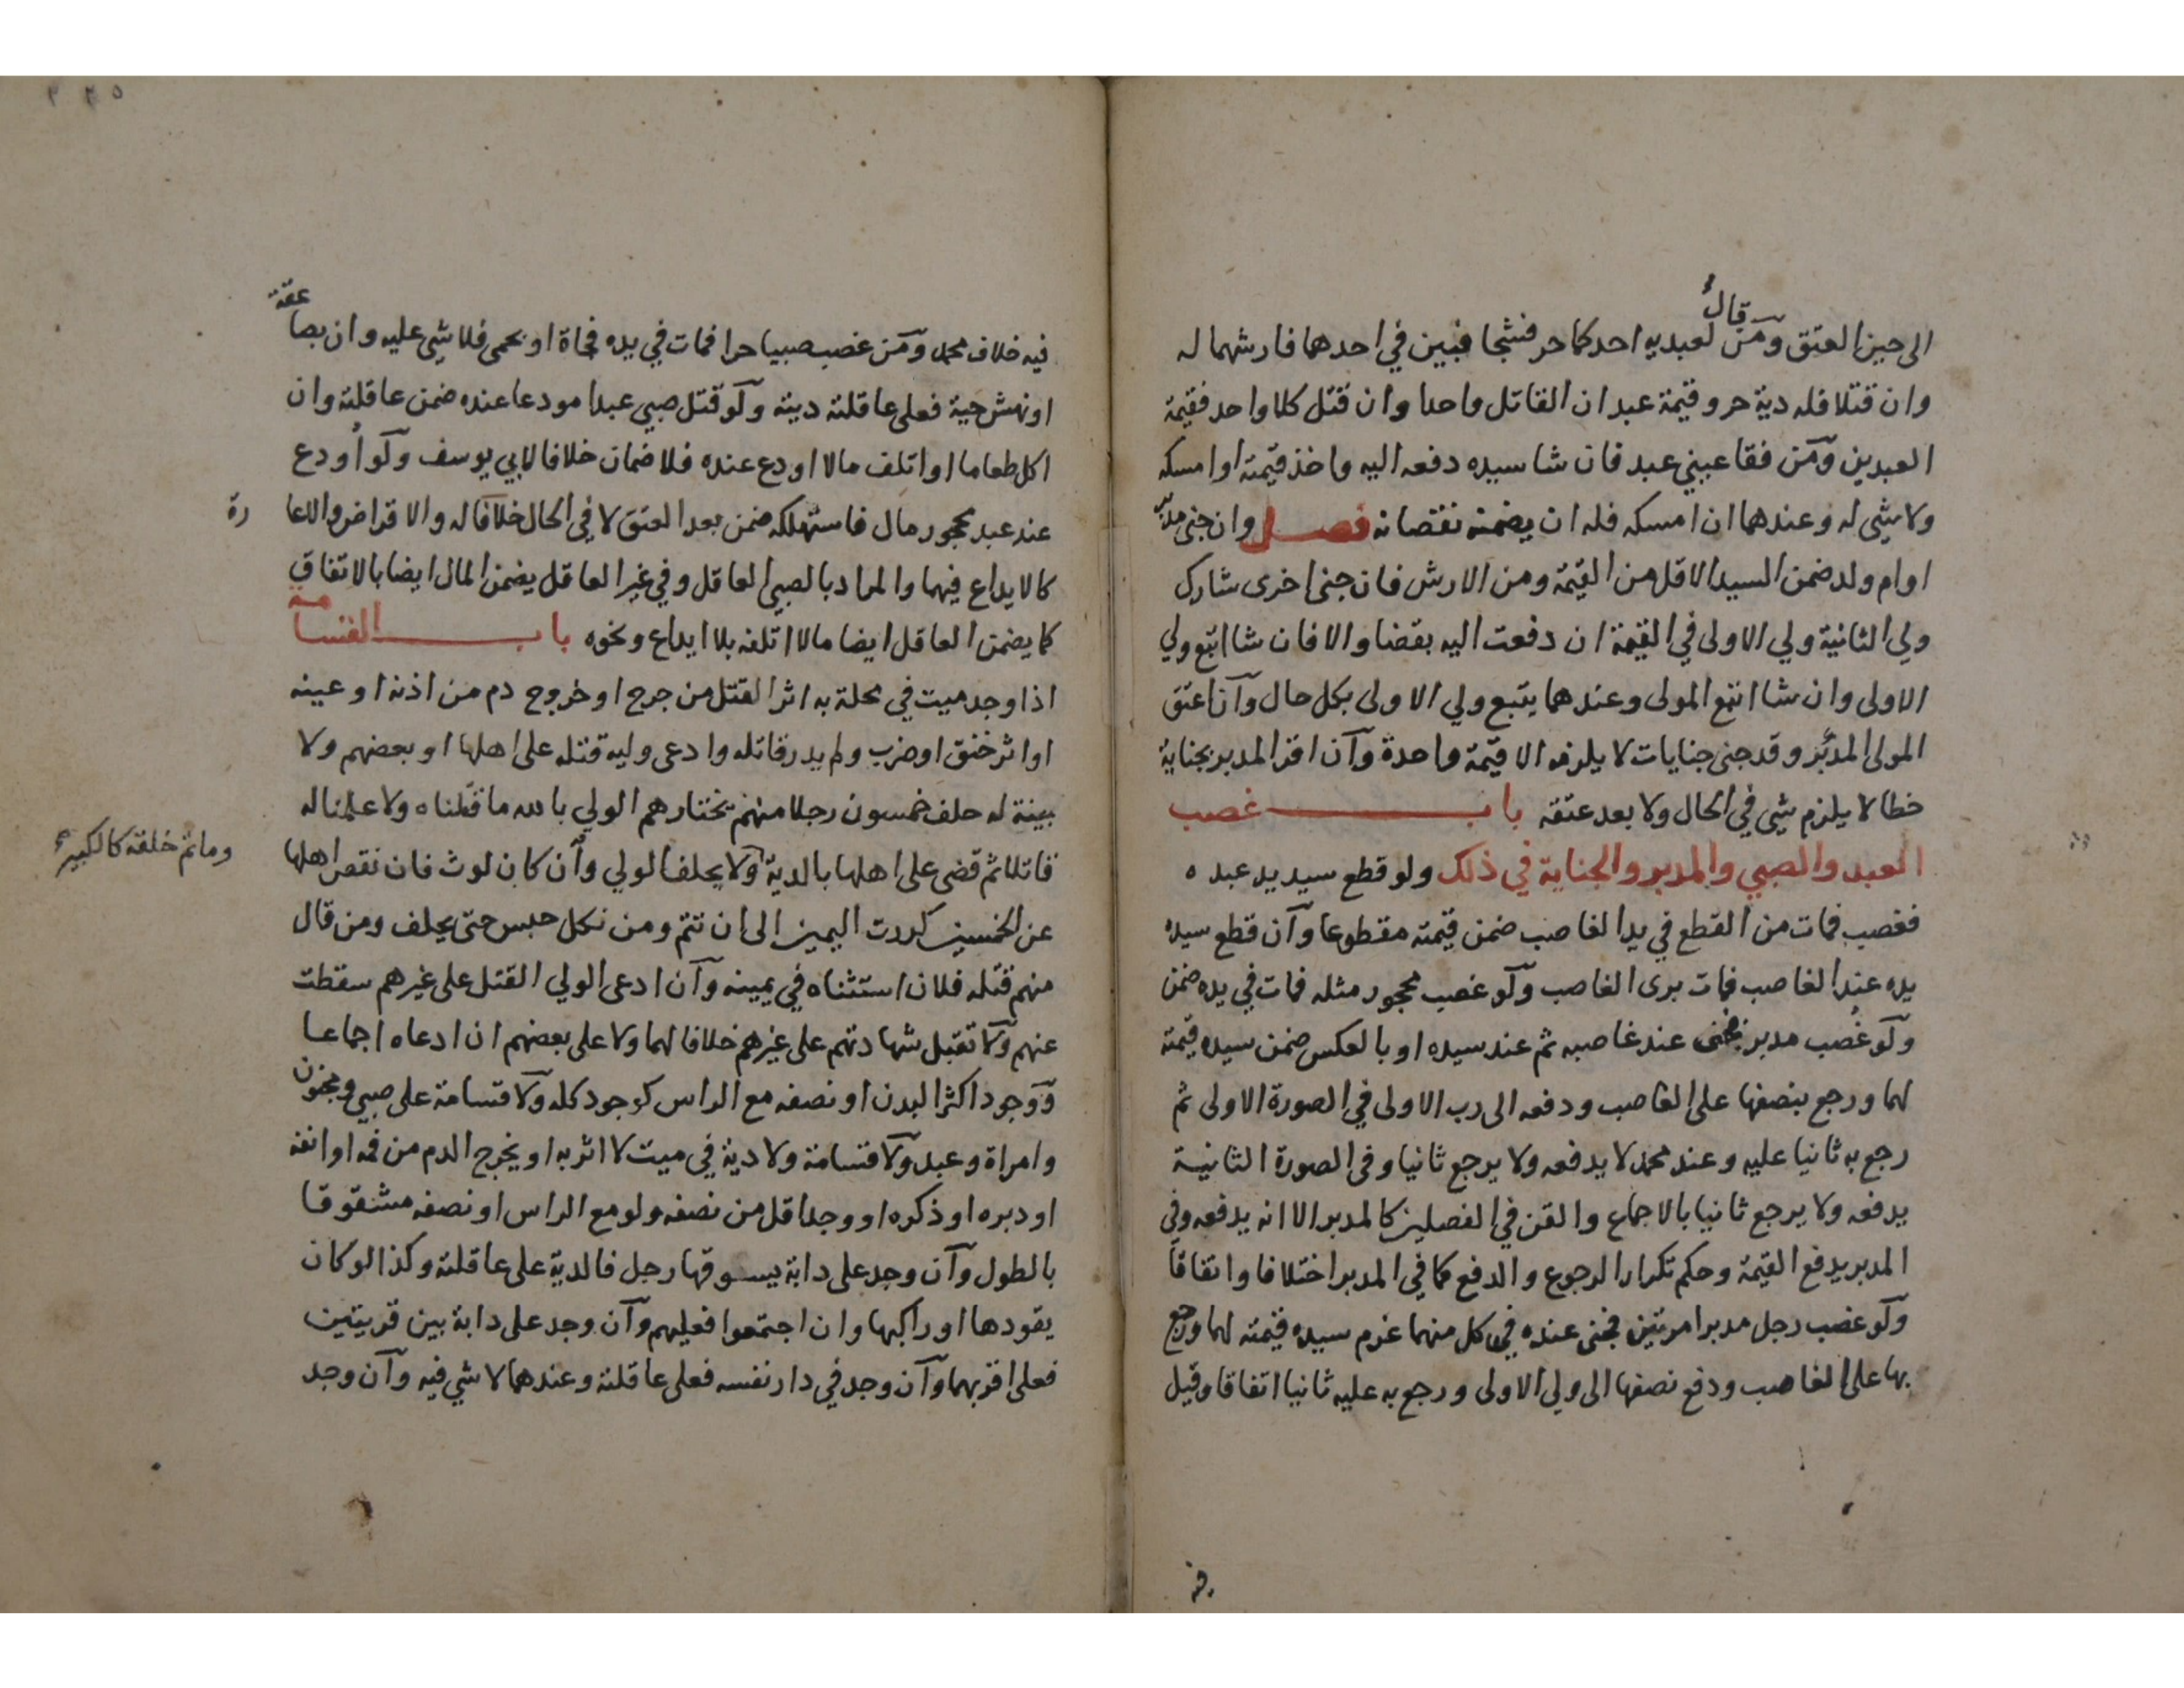 الى حين العتق ومن قال لعبديه احدكما حر فشجا فبين في احدهما فارشهما له
وان قتلا فله دية حر وقيمة عبد ان القاتل واحدا وان قتل كلا واحد فقيمة
العبدين ومن فقا عيني عبد فان شا سيده دفعه اليه واخذ قيمته او امسكه
ولا شي له وعندهما ان امسكه فله ان يضمنه نقصانه فصل وان جنى مدبر
او ام ولد ضمن السيد الاقل من القيمة ومن الارش فان جنى اخرى شارك
ولي الثانية ولي الاولى في القيمة ان دفعت اليه بقضا والا فان شا اتبع ولي
الاولى وان شا اتبع المولى وعندهما يتبع ولي الاولى بكل حال وان اعتق
المولى المدبر وقد جنى جنايات لا يلزمه الا قيمة واحدة وان اقر المدبر بجناية
خطا لا يلزم شي في الحال ولا بعد عتقه باب غصب
العبد والصبي والمدبر والجناية في ذلك ولو قطع سيد يد عبده
فغصب فمات من القطع في يد الغاصب ضمن قيمته مقطوعا وان قطع سيده
يده عند الغاصب فمات برى الغاصب ولو غصب محجور مثله فمات في يده ضمن
ولو غصب مدبر فجنى عند غاصبه ثم عند سيده او بالعكس ضمن سيده قيمته
لهما ورجع بنصفها على الغاصب ودفعه الى رب الاولى في الصورة الاولى ثم
رجع به ثانيا عليه وعند محمد لا يدفعه ولا يرجع ثانيا وفى الصورة الثانية
يدفعه ولا يرجع ثانيا بالاجماع والقن في الفصلين كالمدبر الا انه يدفعه وفي
المدبر يدفع القيمة وحكم تكرار الرجوع والدفع كما في المدبر اختلافا واتفاقا
ولو غصب رجل مدبرا مرتين فجنى عنده في كل منهما غرم سيده قيمته لهما ورجع
بها على الغاصب ودفع نصفها الى ولي الاولى ورجع به عليه ثانيا اتفاقا وقيل
فيه
٣٢٥
فيه خلاف محمد ومن غصب صبيا حرا فمات في يده فجاة او بحمى فلا شي عليه وان بصاعقة
او نهش حية فعلى عاقلته ديته ولو قتل صبي عبدا مودعا عنده ضمن عاقلته وان
اكل طعاما او اتلف مالا اودع عنده فلا ضمان خلافا لابي يوسف ولو أودع
عند عبد محجور مال فاستهلكه ضمن بعد العتق لا في الحال خلافا له والاقراض والاعارة
كالايداع فيهما والمراد بالصبي العاقل وفي غير العاقل يضمن المال ايضا بالاتفاق
كما يضمن العاقل ايضا مالا اتلفه بلا ايداع ونحوه باب القسامة
اذا وجد ميت في محلة به اثر القتل من جرح او خروج دم من اذنه او عينه
او اثر خنق او ضرب ولم يدر قاتله وادعى وليه قتله على اهلها او بعضهم ولا
بينة له حلف خمسون رجلا منهم يختارهم الولي بالله ما قتلناه ولا علمنا له
قاتلا ثم قضى على اهلها بالدية ولا يحلف الولي وان كان لوث فان نقص اهلها
عن الخمسين كررت اليمين الى ان تتم ومن نكل حبس حتى يحلف ومن قال
منهم قتله فلان استثناه في يمينه وان ادعى الولي القتل على غيرهم سقطت
عنهم ولا تقبل شهادتهم على غيرهم خلافا لهما ولا على بعضهم ان ادعاه اجماعا
ووجود اكثر البدن او نصفه مع الراس كوجود كله ولا قسامة على صبي ومجنون
وامراة وعبد ولا قسامة ولا دية في ميت لا اثر به او يخرج الدم من فمه او انفه
او دبره او ذكره او وجد اقل من نصفه ولو مع الراس او نصفه مشقوقا
بالطول وان وجد على دابة يسوقها رجل فالدية على عاقلته وكذا لو كان
يقودها او راكبها وان اجتمعوا فعليهم وان وجد على دابة بين قريتين
فعلى اقربهما وان وجد في دار نفسه فعلى عاقلته وعندهما لا شي فيه وان وجد
وما تم خلقه كالكبير